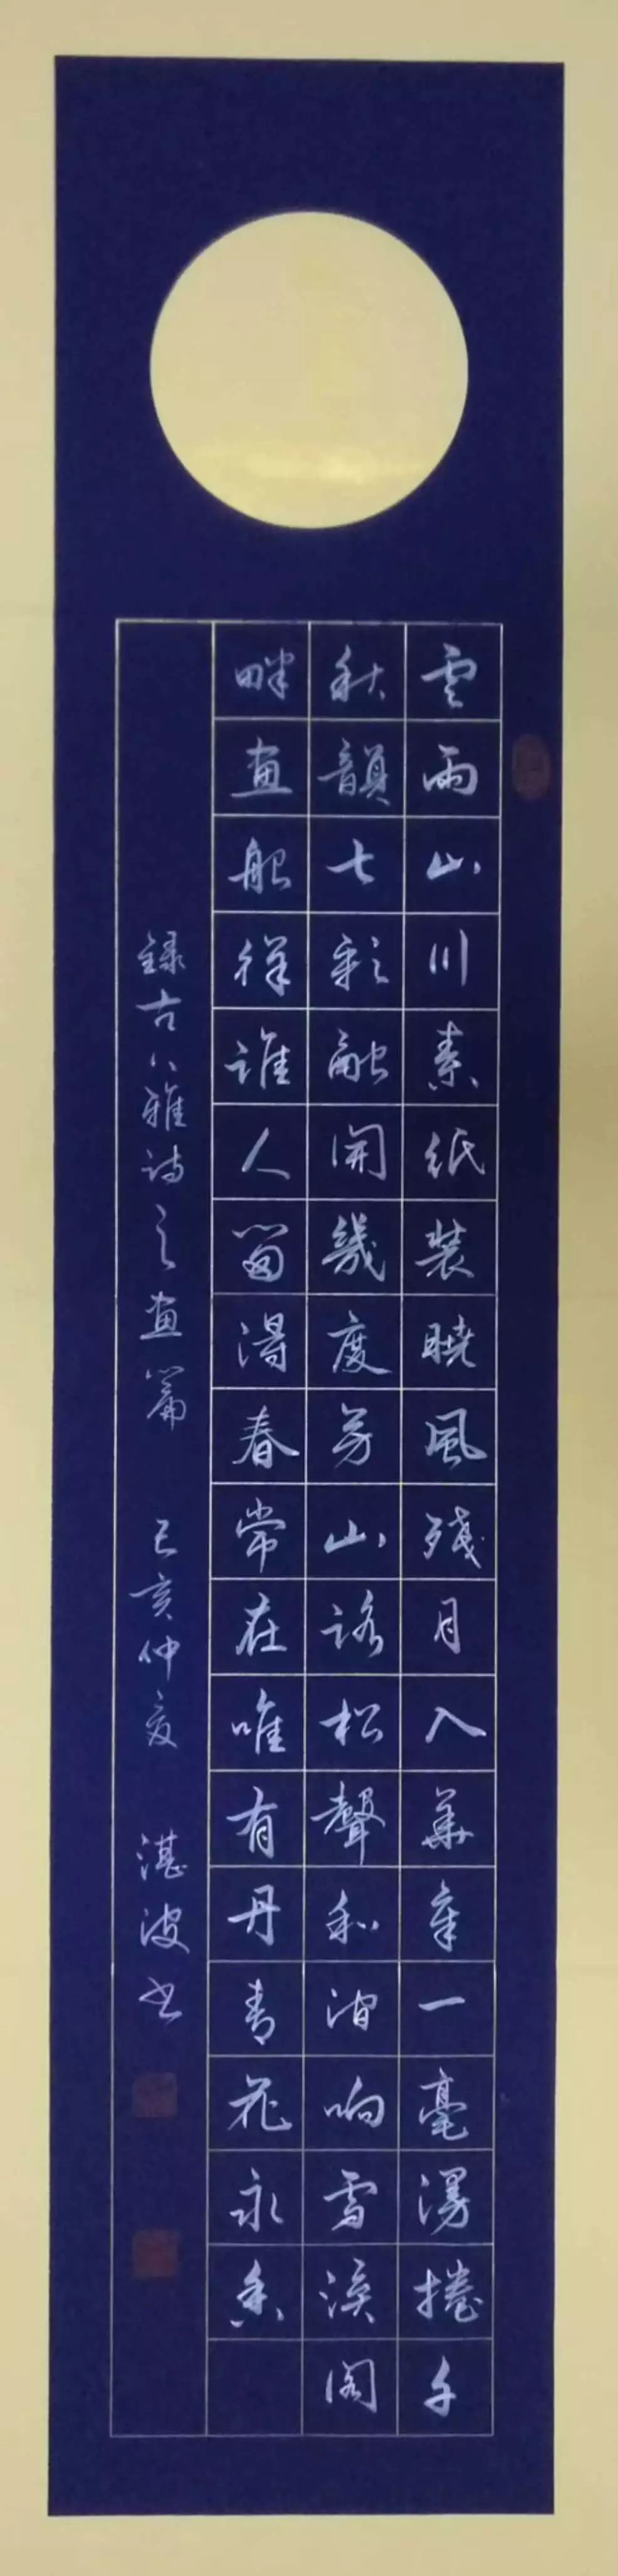 雲雨山川素紙裝曉風殘月入華章一毫漫捲千
秋韻七彩融開幾度芳山路松聲和澗响雪溪閣
畔畫船徉誰人留得春常在唯有丹青花永香
錄古八雅詩之畫篇 己亥仲夏 湛波书